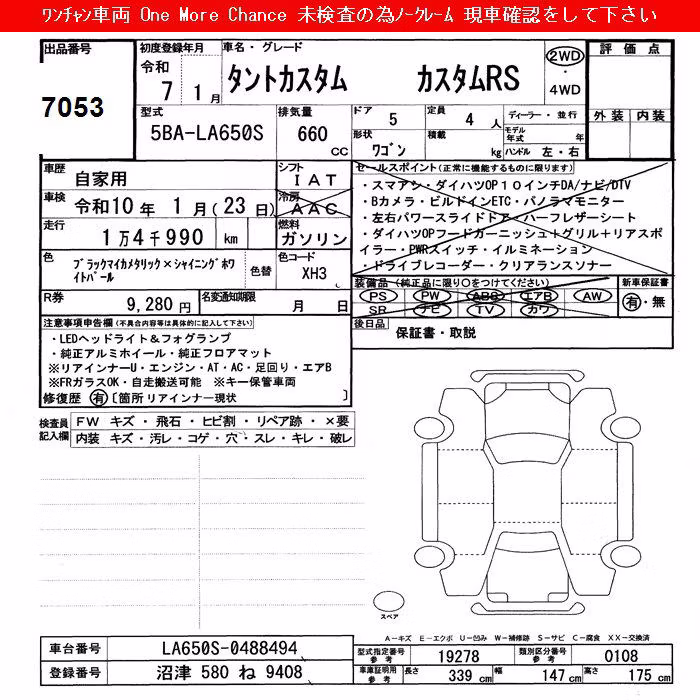 ﾜﾝﾁｬﾝ車両 One More Chance 未検査の為ﾉｰｸﾚｰﾑ 現車確認をして下さい
出品番号
7053
初度登録年月
令和
7 1月
車名・グレード
タントカスタム カスタムRS
2WD
・
4WD
評価点
外装 内装
型式
5BA-LA650S
排気量
660
CC
ドア
5
定員
4 人
形状
ﾜｺﾞﾝ
積載
kg
ディーラー・並行
モデル年式 年
ハンドル 左・右
車歴
自家用
シフト
IAT
車検
令和10年 1月(23日)
冷房
AAC
走行
1万4千990 km
燃料
ガソリン
色
ﾌﾞﾗｯｸﾏｲｶﾒﾀﾘｯｸ×ｼｬｲﾆﾝｸﾞﾎﾜ
ｲﾄﾊﾟｰﾙ
色替
色コード
XH3
R券
9,280円
名変通知期限
月 日
セールスポイント(正常に機能するものに限ります)
・スマアシ・ダイハツOP10インチDA/ナビ/DTV
・Bカメラ・ビルドインETC・パノラマモニター
・左右パワースライドドア・ハーフレザーシート
・ダイハツOPフードガーニッシュ+グリル+リアスポ
イラー・PWRスイッチ・イルミネーション
・ドライブレコーダー・クリアランスソナー
装備品(純正品に限り○をつけてください)
PS PW ABS エアB AW
SR ナビ TV カワ
新車保証書
有・無
後日品
保証書・取説
注意事項申告欄(不具合内容等は具体的に記入して下さい)
・LEDヘッドライト＆フォグランプ
・純正アルミホイール・純正フロアマット
※リアインナーU・エンジン・AT・AC・足回り・エアB
※FRガラスOK・自走搬送可能 ※キー保管車両
修復歴 有 [箇所 リアインナー現状 ]
検査員記入欄
FW キズ・飛石・ヒビ割・リペア跡・×要
内装 キズ・汚レ・コゲ・穴・スレ・キレ・破レ
スペア
A－キズ E－エクボ U－凹み W－補修跡 S－サビ C－腐食 XX－交換済
車台番号
LA650S-0488494
登録番号
沼津 580 ね 9408
型式指定番号
参考
19278
類別区分番号
参考
0108
車庫証明用
参考
長さ
339 cm
幅
147 cm
高さ
175 cm